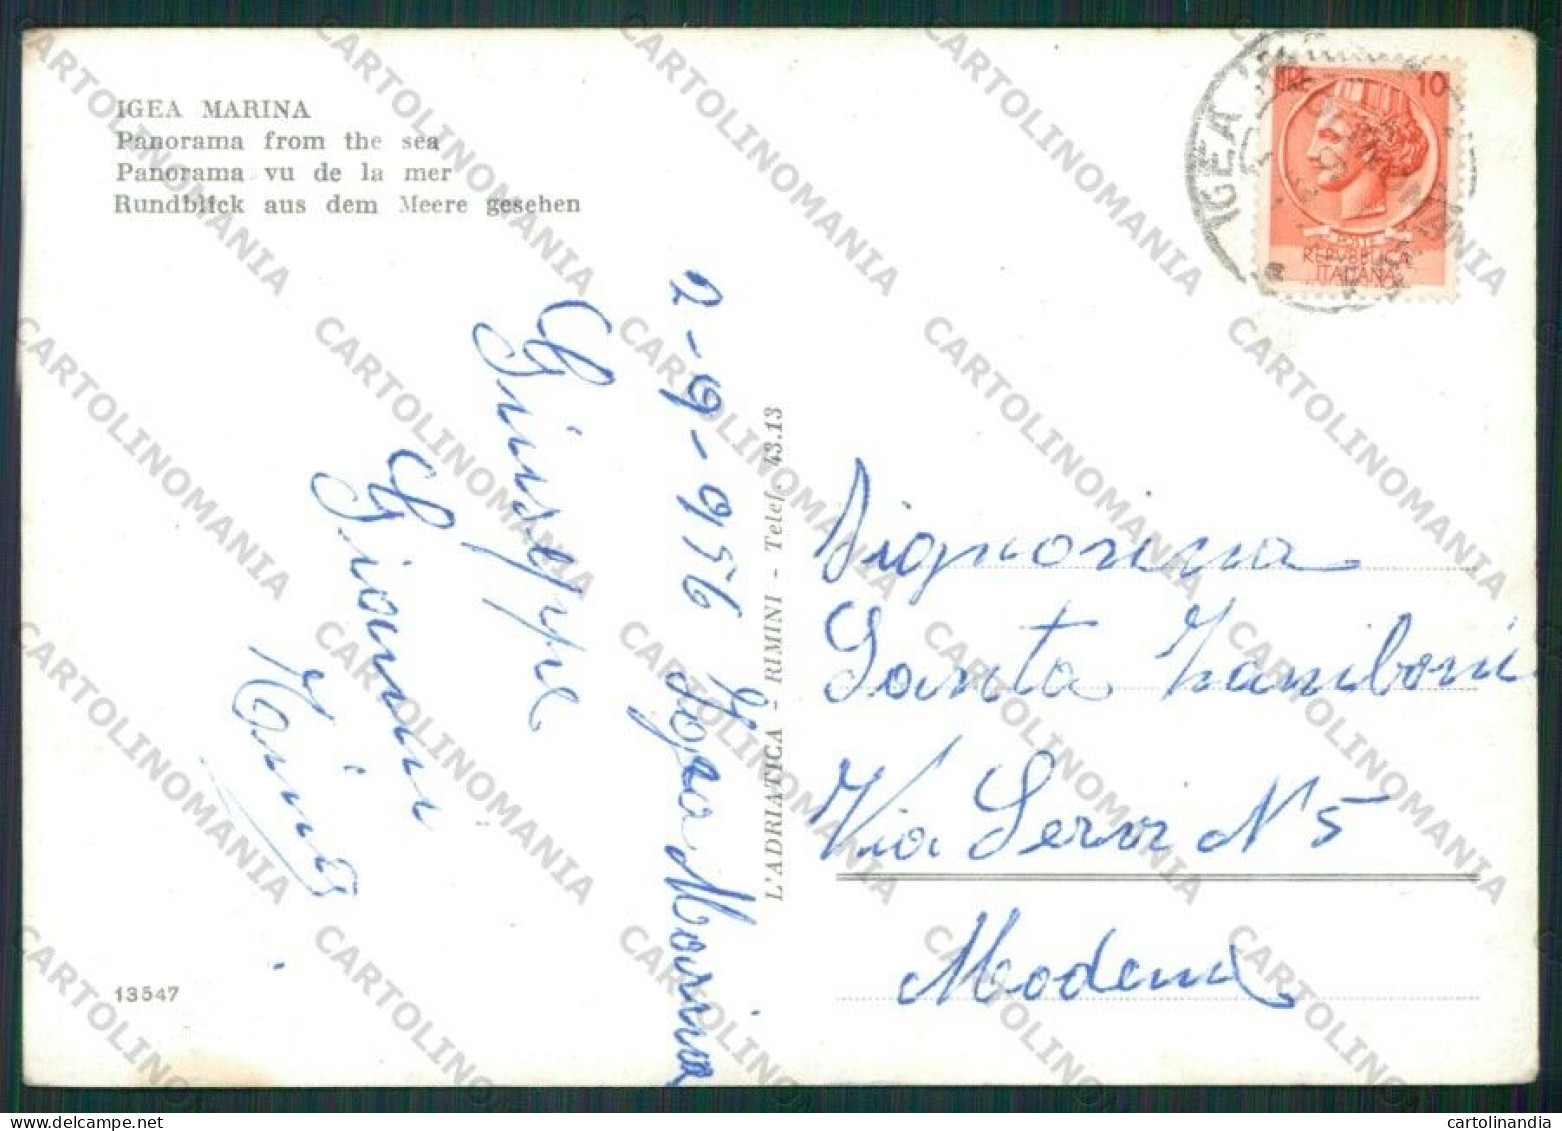 IGEA MARINA
Panorama from the sea
Panorama vu de la mer
Rundblick aus dem Meere gesehen
LIRE 10
POSTE
REPVBBLICA
ITALIANA
IGEA
2-9-956 Igea Marina
Giuseppe
Gianni
L'ADRIATICA - RIMINI - Telef. 43.13
Signorina
Santa Zaniboni
Via Servi N 5
Modena
13547
CARTOLINOMANIA
www.delcampe.net
cartolinandia